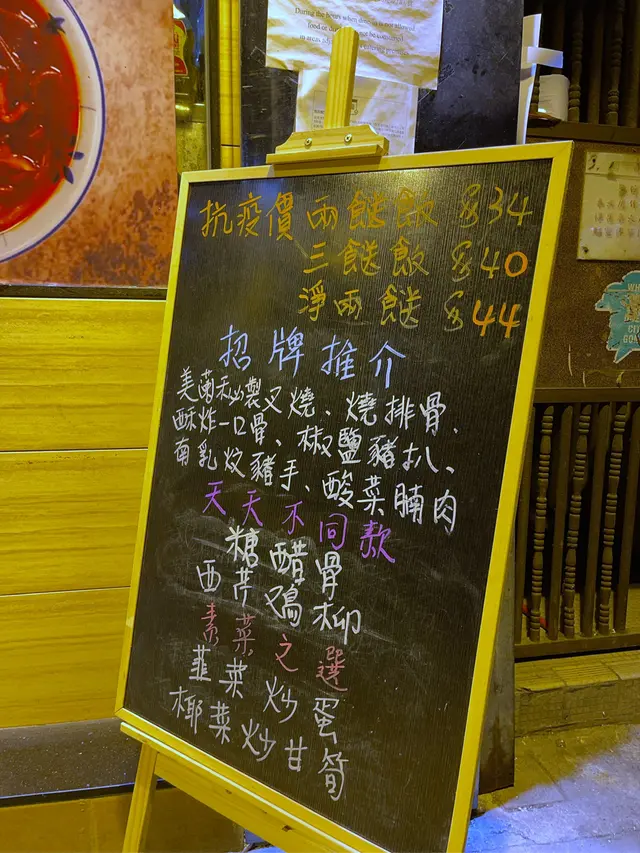 During the hours when dine-in is not allowed
抗疫價 兩餸飯 $34
三餸飯 $40
淨兩餸 $44
招牌推介
美蘭秘製叉燒、燒排骨、
酥炸一口骨、椒鹽豬扒、
南乳炆豬手、酸菜腩肉
天天不同款
糖醋骨
西芹鴻柳
素菜之選
韮菜炒蛋
椰菜炒甘筍